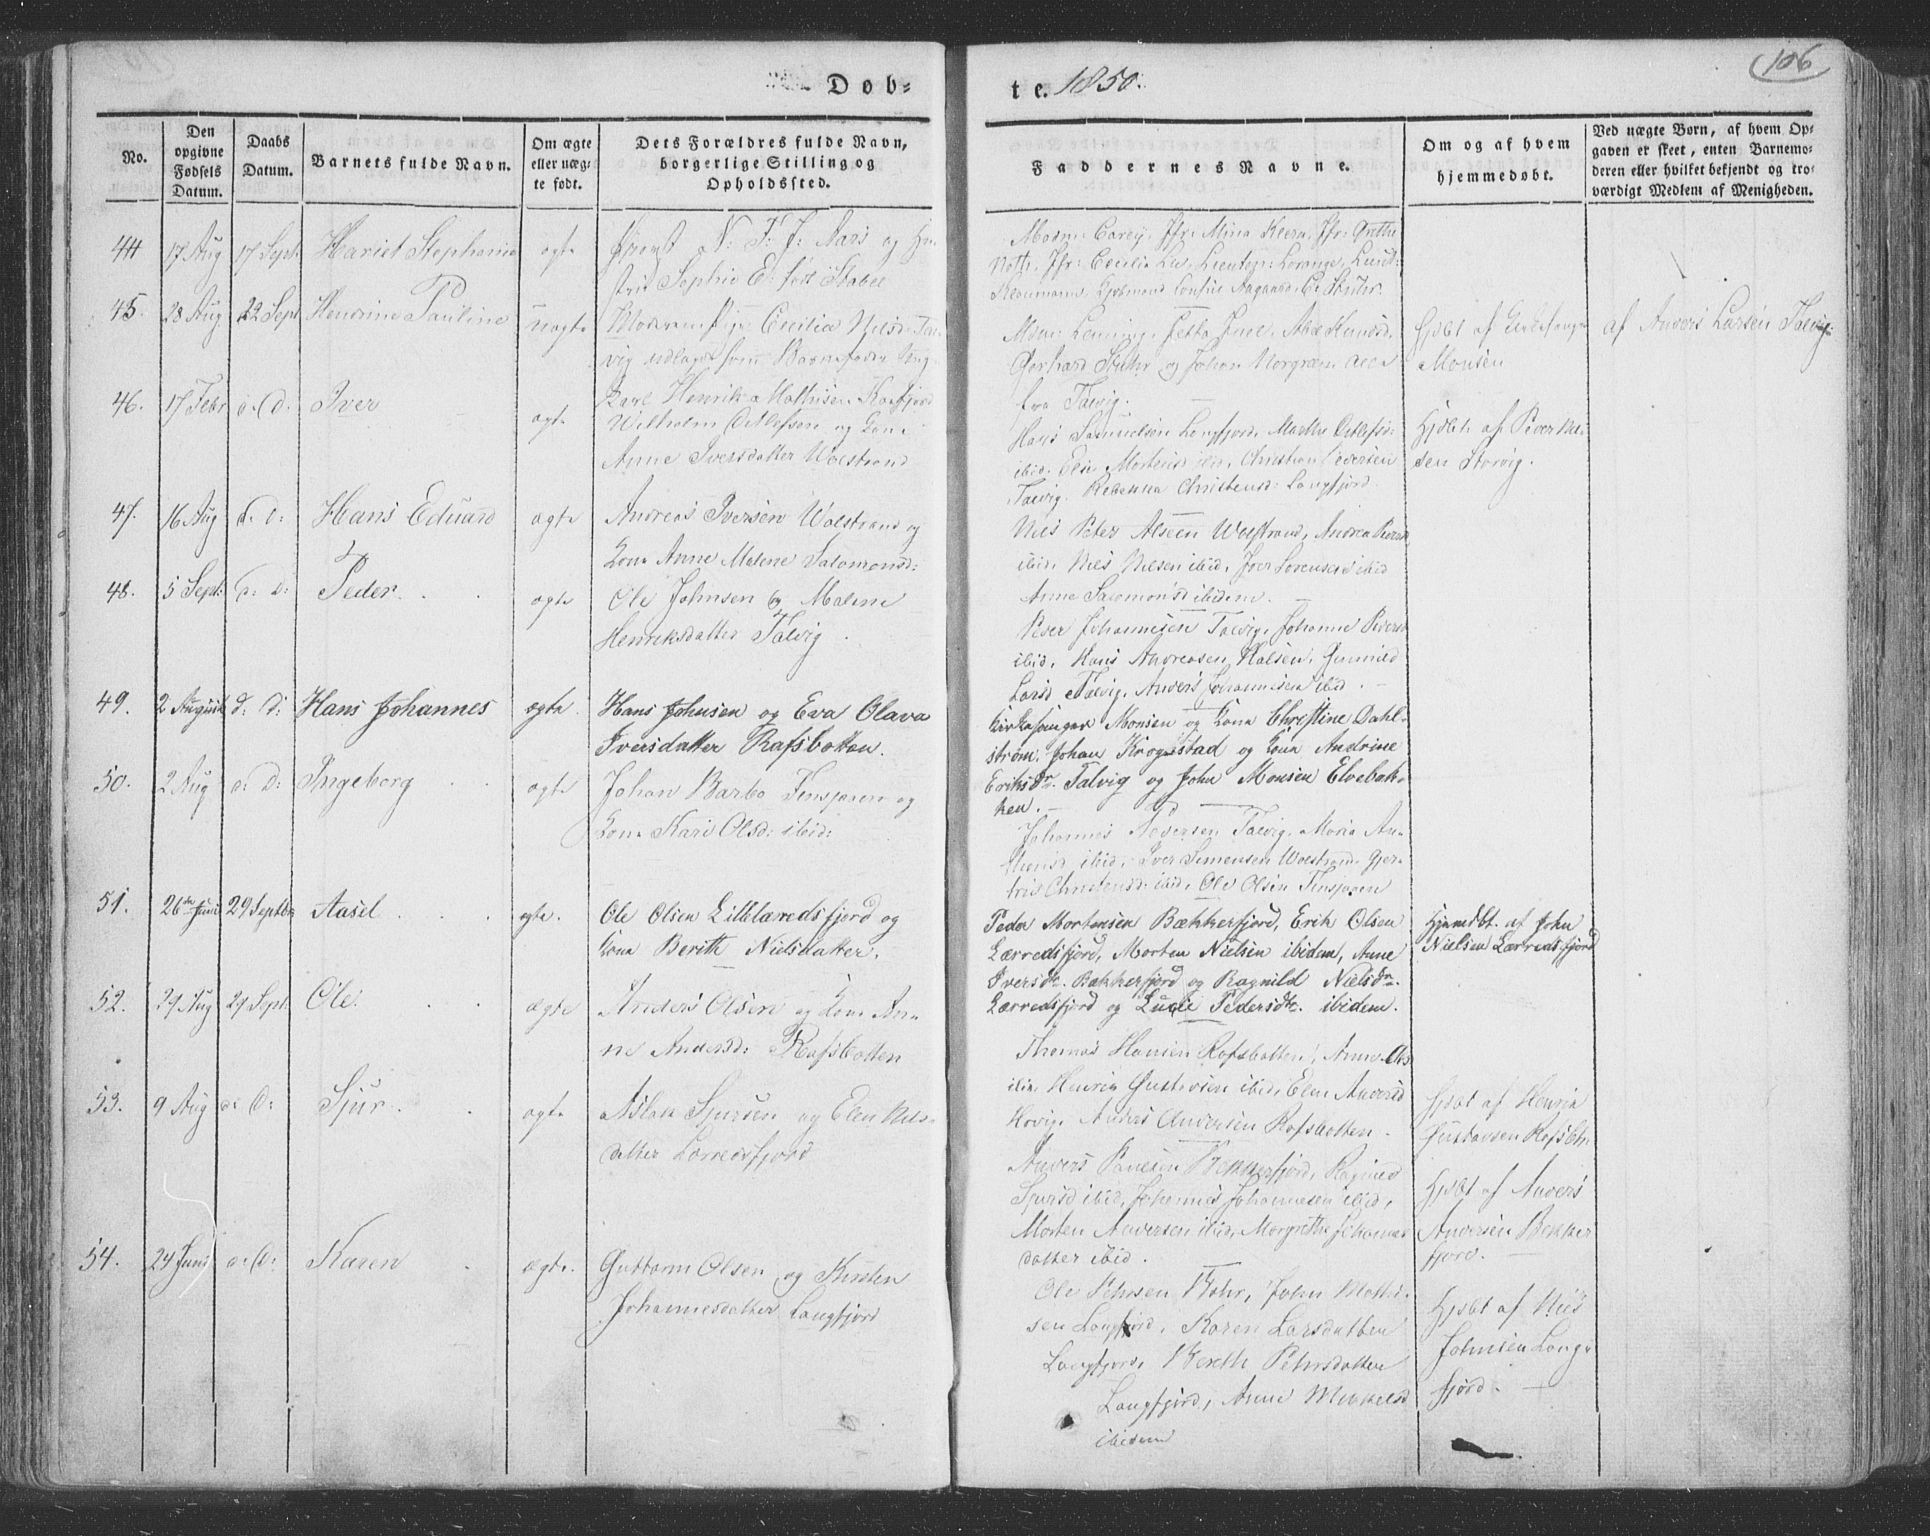 106
Døb=
te. 1850.
No.
Den
opgivne
Fødsels
Datum.
Daabs
Datum.
Barnets fulde Navn.
Om ægte
eller uæg=
te født.
Dets Forældres fulde Navn,
borgerlige Stilling og
Opholdssted.
Faddernes Navne.
Om og af hvem
hjemmedøbt.
Ved uægte Børn, af hvem Op=
gaven er skeet, enten Barnemo=
deren eller hvilket bekjendt og tro=
værdigt Medlem af Menigheden.
44 17 Aug 17 Sept. Hariet Stephanie ægte
N: F: J: Aars og Hu=
stru Sophie E. født Stabel
45. 28 Aug 22 Sept Henrine Pauline uægte
Moderen Pige Cecilia Nilsd: Tal=
vig udlagt som Barnefader Ung=
karl Henrik Mathisen Kaafjord
Gerhard Stuhr og Johan Norgreen alle
fra Talvig.
Monsen
af Anders Larsen Talvig
46. 17 Febr a: d: Iver ægte
Wilhelm Ditlefsen og Kone
Anne Iversdatter Wolstrand
Hans Samuelsen Langfjord, Marthe Ditlefsd:
ibid. Elen Mortensd ibid, Christian Pedersen
Talvig. Rebekka Christensd: Langfjord.
Hjdbt. af Peder Nil=
sen Storvig.
47. 16 Aug a: d: Hans Eduard ægte
Andreas Iversen Wolstrand og
Kone Anne Malene Salomonsd:
Nils Peter Alseen Wolstrand, Andrea Pedersd
ibid. Nils Nilsen ibid, Iver Lorensen ibid
Anne Salomonsd ibidem.
48. 5 Sept: a: d: Peder. ægte
Ole Johnsen og Malene
Henriksdatter Talvig.
Peder Johannesen Talvig, Johanne Pedersd
ibid, Hans Andreasen Halsen, Gunnild
Larsd Talvig, Anders Johannesen ibid.
49. 2 August d: d: Hans Johannes ægte
Hans Johnsen og Eva Olava
Iversdatter Rafsbotten.
Kirkesanger Monsen og Kone Christine Dahl=
strøm, Johan Krognstad og Kone Andrine
Eriksdr. Talvig og John Monsen Elvebak=
ken.
50. 2 Aug a: d: Ingeborg ægte
Johan Barbo Finsjøren og
Kone Kari Olsd: ibid:
Johannes Andersen Talvig, Maria An=
thonisd ibid, Iver Simensen Wolstrand, Gjer=
tris Christensd: ibid, Ole Olsen Finsjøren
51. 26de Juni 29 Septbr Aasel ægte.
Ole Olsen Lillelæredsfjord og
Kone Berith Nielsdatter.
Peder Mortensen Bækkerfjord, Erik Olsen
Lærredsfjord, Morten Nielsen ibidem, Anne
Iversdr. Bækkerfjord og Ragnild Nielsdr.
Lærredsfjord og Lucie Pedersdr. ibidem.
Hjemdbt. af John
Nielsen Lærredsfjord
52. 29 Aug 29 Sept. Ole. ægte
Anders Olsen og Kone An=
ne Andersd: Rafsbotten
Thomas Hansen Rafsbotten, Anne Ols
ibid. Henrik Gustavsen ibid, Elen Andersd
Anders Andersen Rafsbotten.
Hjdbt af Henrik
Gustavsen Rafsbtn.
53. 9 Aug a: d: Sjur. ægte
Aslak Sjursen og Elen Nils=
datter Lærredsfjord
Anders Bekkerfjord, Ragnild
Sjursd ibid, Johannes Johannesen ibid,
Morten Andersen ibid, Margrethe Johannes
datter ibid.
Hjdbt af Anders
Andersen Bekker
fjord.
54. 24 Juni a: d: Karen ægte.
Guttorm Olsen og Kirsten
Johannesdatter Langfjord
Ole Pehrsen Bohr, John Mathi=
sen Langfjord, Karen Larsdatter
Langfjord, Bereth Pehrsdatter
Langfjord, Anne Mikkelsd
ibidem
Hjdbt af Nils
Johnsen Lang=
fjord.